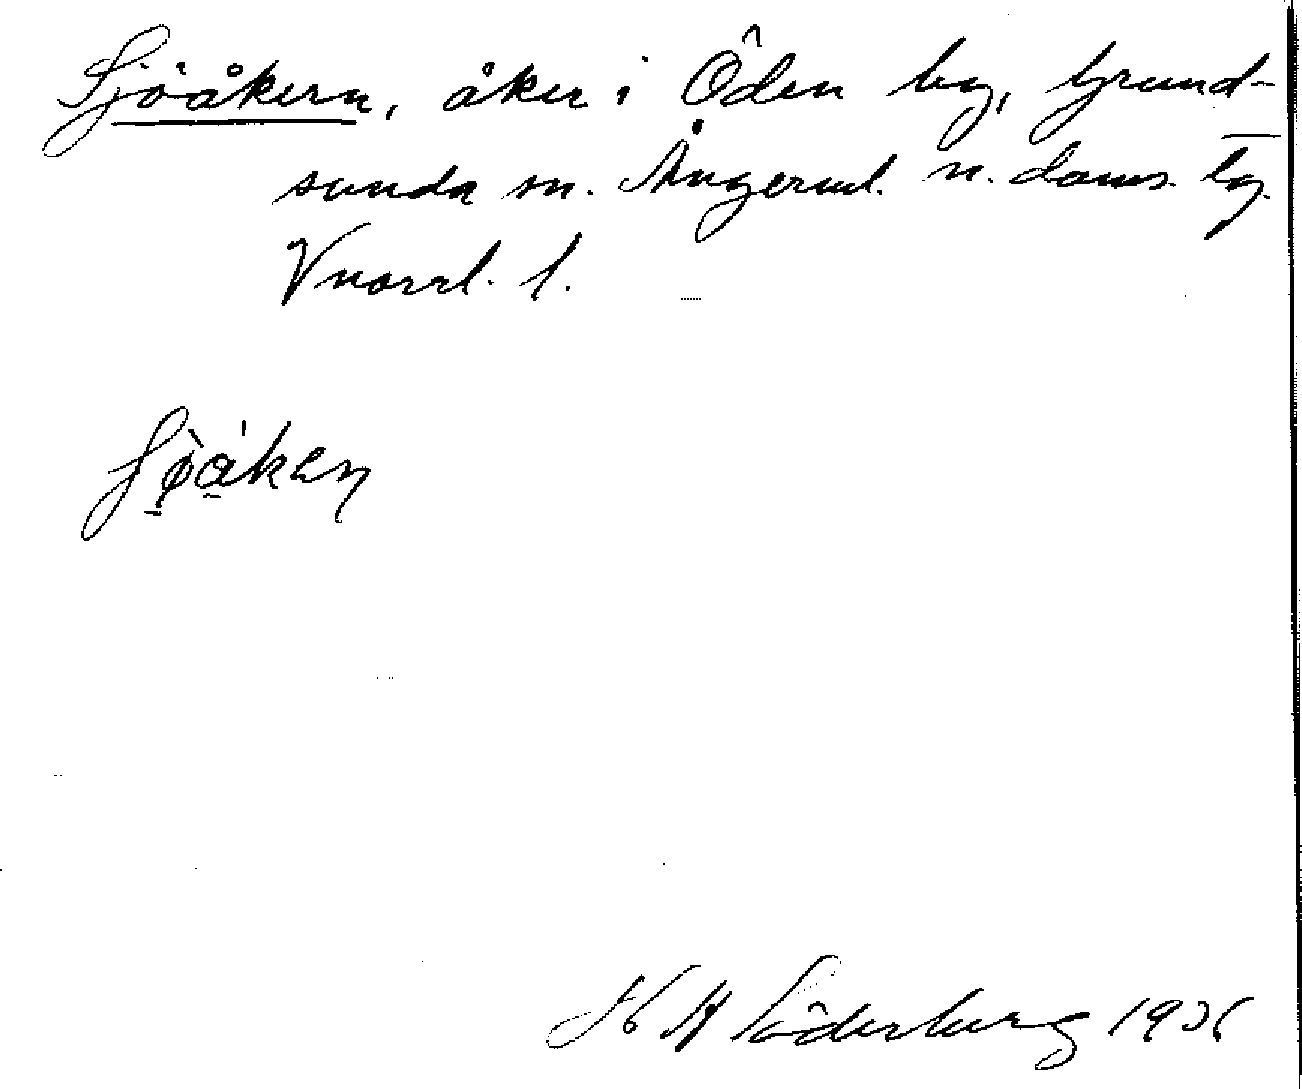 Sjöåkern, åker i Öden by, Grund-
sunda sn. Ångerml. n. doms. lg.
Vnorrl. l.
H Söderberg